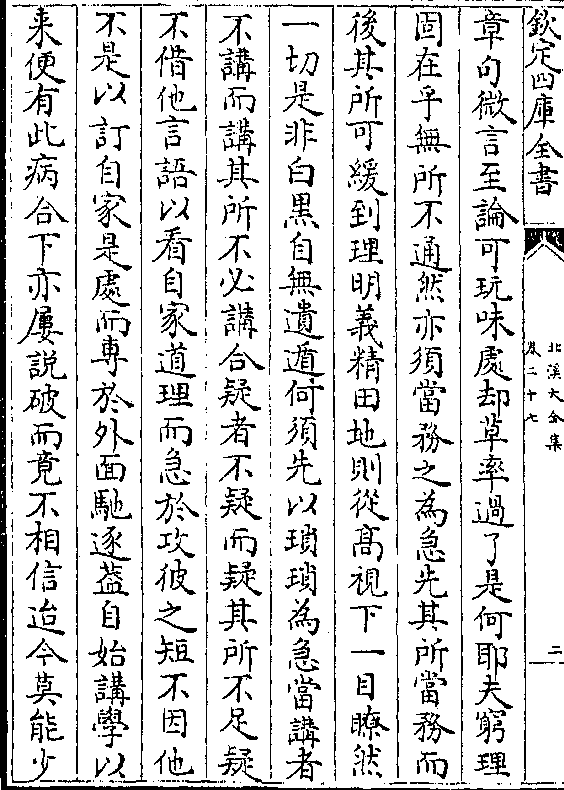 欽定四庫全書
北溪大全集
卷二十七
二
章句微言至論可玩味處却草率過了是何耶夫窮理
固在乎無所不通然亦須當務之為急先其所當務而
後其所可緩到理明義精田地則從髙視下一目瞭然
一切是非白黒自無遺遁何須先以瑣瑣為急當講者
不講而講其所不必講合疑者不疑而疑其所不足疑
不借他言語以看自家道理而急於攻彼之短不因他
不是以訂自家是處而專於外面馳逐葢自始講學以
来便有此病合下亦屢説破而竟不相信迨今莫能少